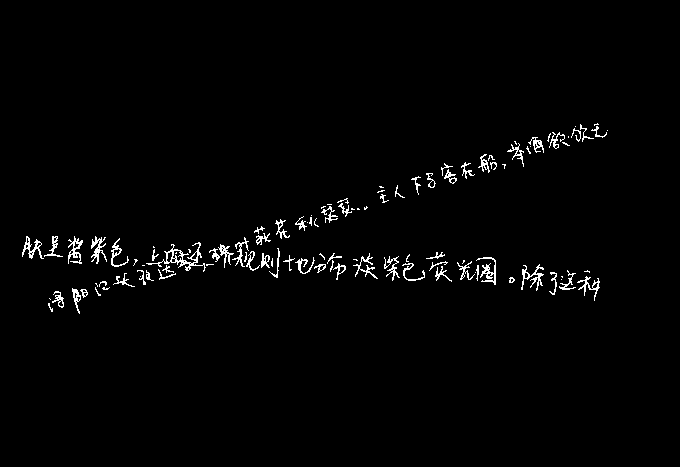 肤是酱紫色，上面还规则地分布淡紫色荧光圈。除了这种
浔阳江头夜送客，枫叶荻花秋瑟瑟... 主人下马客在船，举酒欲饮无